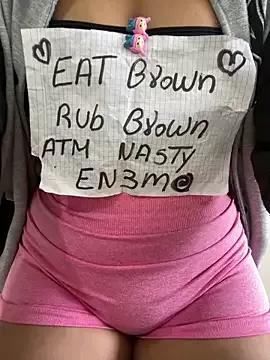 EAT Brown
Rub Brown
ATM NASTY
EN3M@